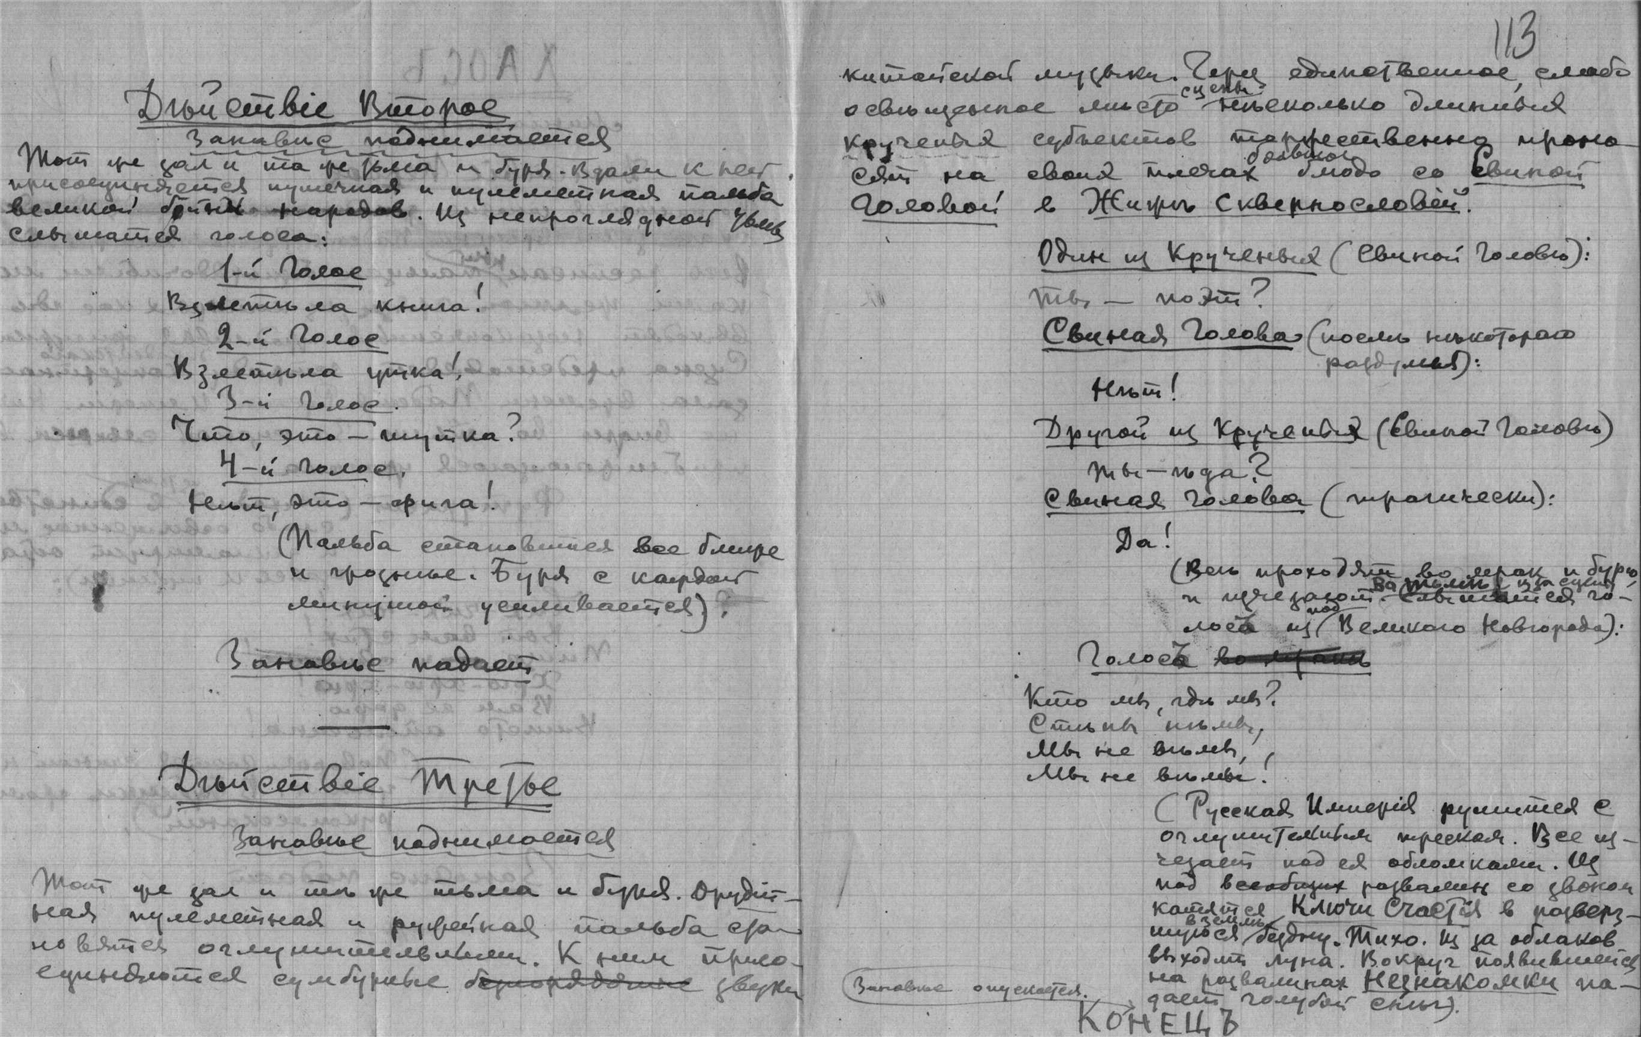 Дѣйствіе Второе
Занавѣс поднимается
Тот же зал и та же тьма и буря. Вдали к ней
присоединяется пушечная и пулеметная пальба
великой битвы народов. Из непроглядной тьмы
слышатся голоса:
1-й Голос
Взлетѣла книга!
2-й Голос
Взлетѣла утка!
3-й Голос.
Что, это – шутка?
4-й Голос.
Нѣт, это – фига!
(Пальба становится все ближе
и грознѣе. Буря с каждой
минутой усиливается).
Занавѣс падает
Дѣйствіе Третье
Занавѣс поднимается
Тот же зал и та же тьма и буря. Орудій-
ная пулеметная и ружейная пальба ста-
новятся оглушительными. К ним присо-
единяются сумбурные безпорядочные звуки
113
китайской музыки. Через единственное, слабо
освѣщенное мѣсто сцены нѣсколько длинных
крученых субъектов торжественно проно-
сят на своих плечах большое блюдо со Свиной
Головой в Жиру Сквернословій.
Один из Крученых (Свиной Головѣ):
Ты – поэт?
Свиная Голова (послѣ нѣкотораго
раздумья):
Нѣт!
Другой из Крученых (Свиной Головѣ)
Ты – ѣда?
Свиная Голова (трагически):
Да!
(Всѣ проходят во мрак и бурю
и исчезают. Во тьмѣ из за сцены слышатся го-
лоса из под (Великого Новгорода):
Голоса во мракѣ
Кто мы, гдѣ мы?
Стѣны нѣмы,
Мы не вѣмы,
Мы не вѣмы!
(Русская Имперія рушится с
оглушительным треском. Все из-
чезает под ея обломками. Из
под всеобщих развалин со звоном
катятся Ключи Счастія в разверз-
шуюся в землѣ бездну. Тихо. Из за облаков
выходит луна. Вокруг появившейся
на развалинах Незнакомки па-
дает голубой снѣг).
Занавѣс опускается.
КОНЕЦЪ